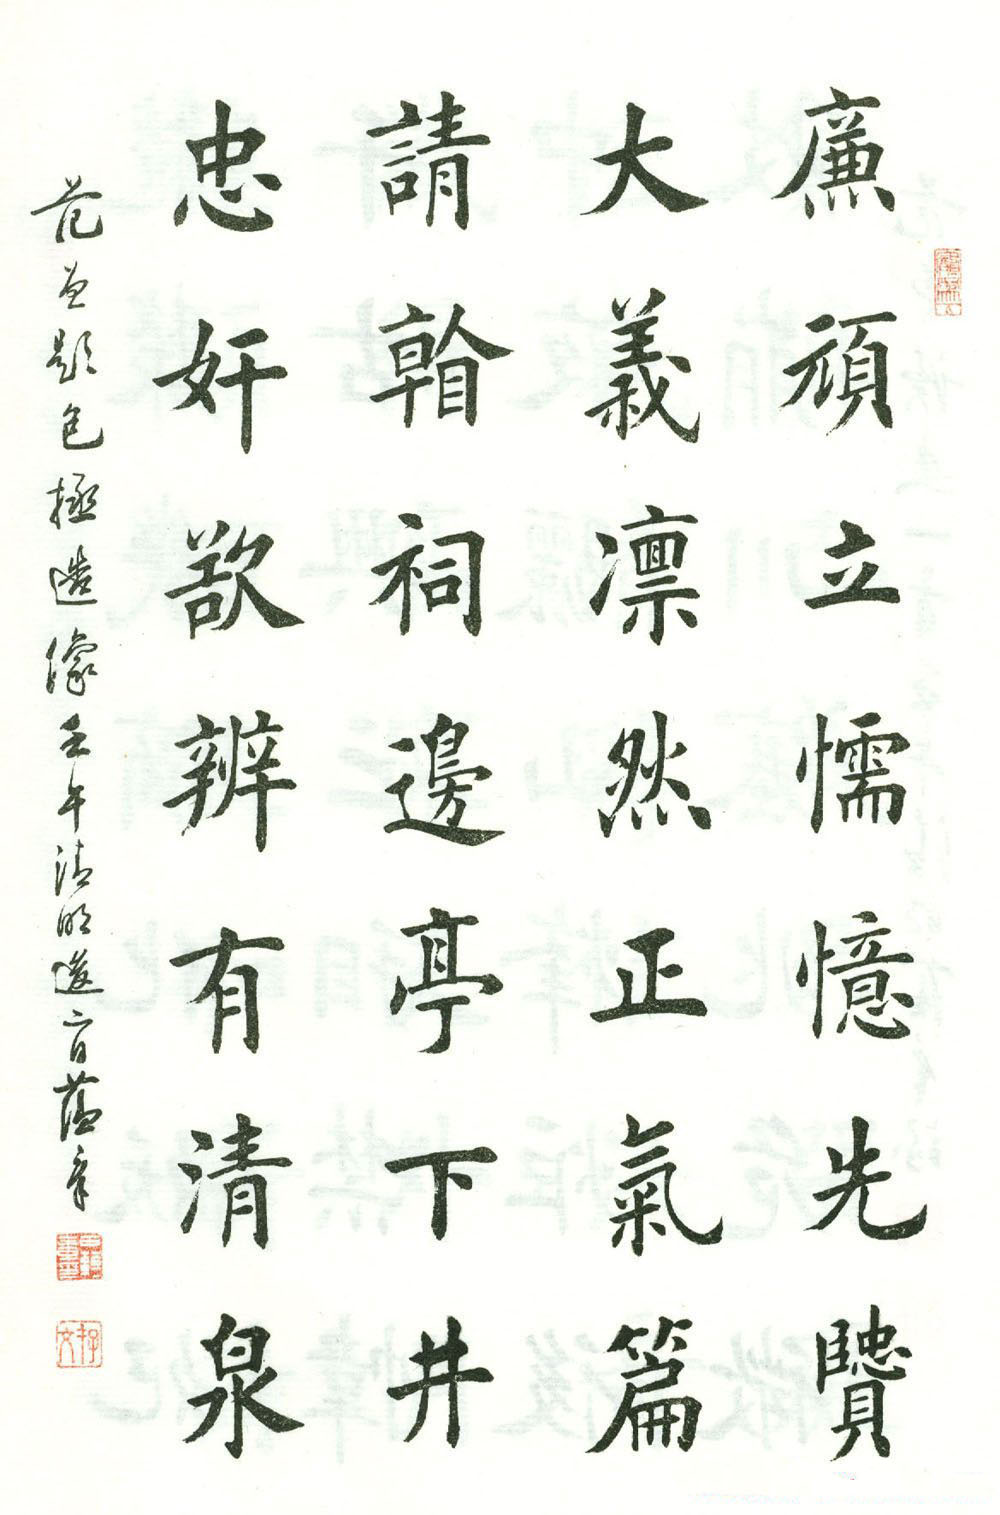 廉頑立懦憶先賢
大義凛然正氣篇
請看祠邊亭下井
忠奸欲辨有清泉
范曾題包拯造像壬午清明後二日蘊章